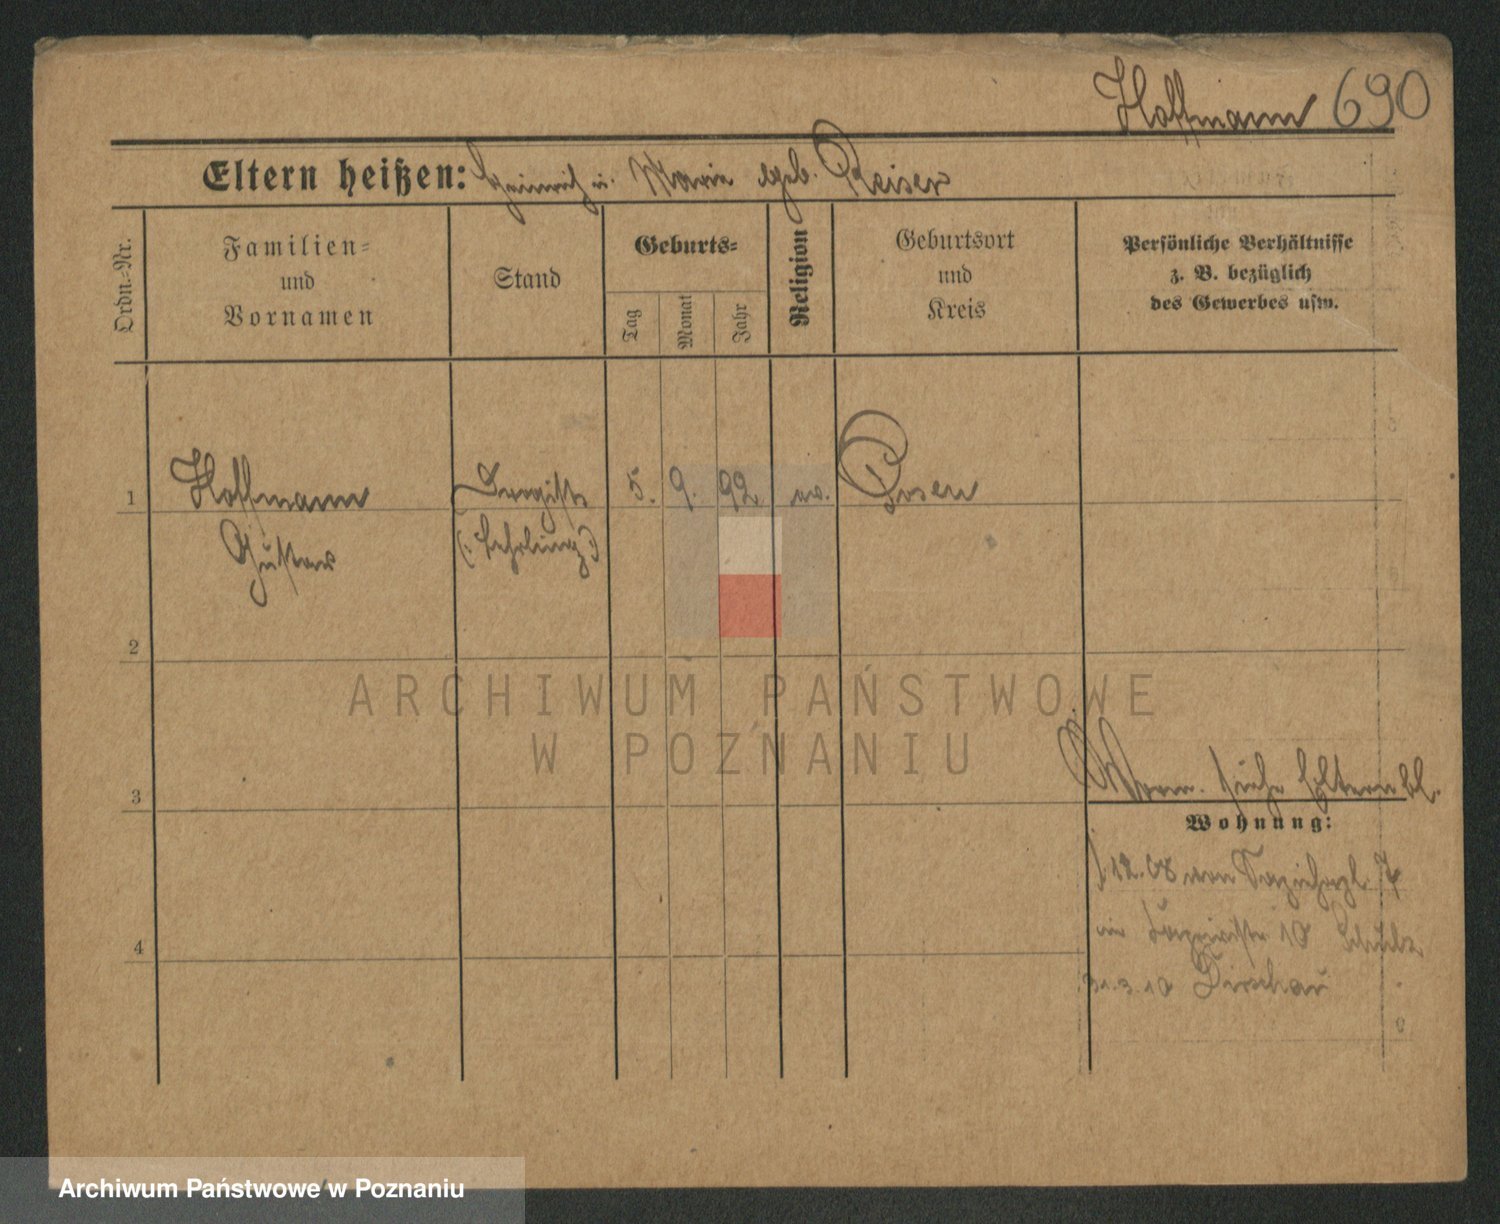 Hoffmann 690
Eltern heißen: Heinrich u. Marie geb. Reiser
Ordn.-Nr.
Familien-
und
Vornamen
Stand
Geburts-
Tag
Monat
Jahr
Religion
Geburtsort
und
Kreis
Persönliche Verhältnisse
z. B. bezüglich
des Gewerbes usw.
1 Hoffmann Drogist 5. 9. 92 ev. Posen
Gustav (: Lehrling :)
2
ARCHIWUM PAŃSTWOWE
W POZNANIU
3
Worm. siehe Elternbl.
Wohnung:
1.12.08 von 7
in 10 Schulz
4
31.3.10 Dirschau
Archiwum Państwowe w Poznaniu